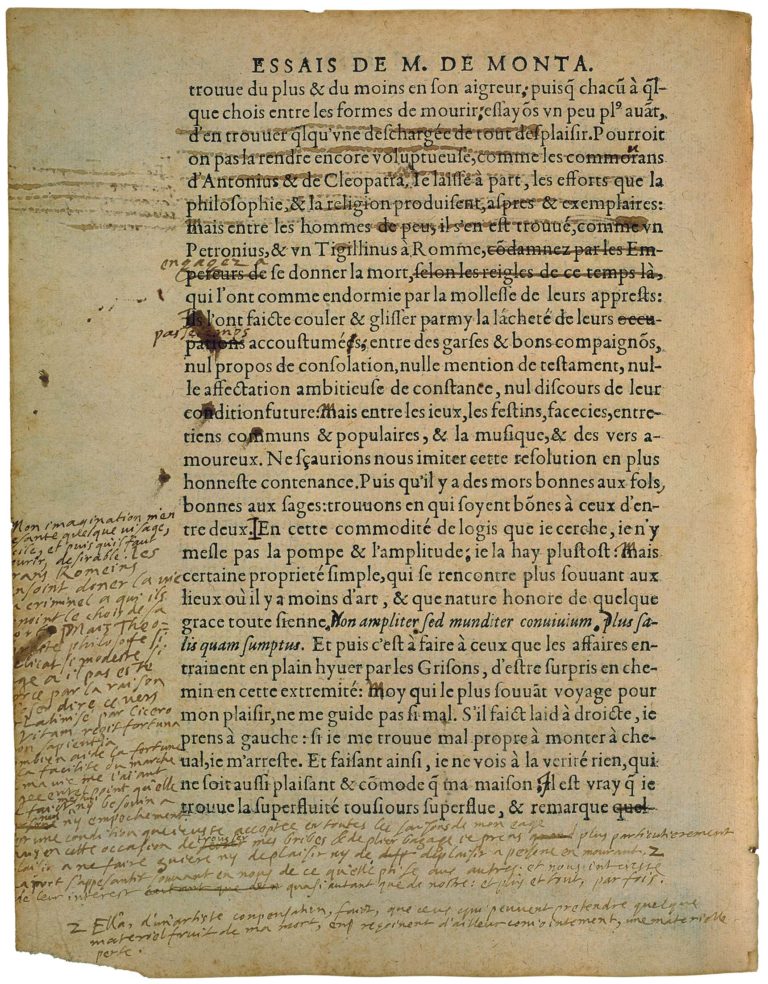 ESSAIS DE M. DE MONTA.
trouue du plus & du moins en ſon aigreur; puisq̃ chacũ à q̃l-
que chois entre les formes de mourir; eſſayõs vn peu pl⁹ auãt,
d'en trouuer q̃lqu'vne deſchargée de tout deſplaiſir. Pourroit
on pas la rendre encore voluptueuſe, comme les commourans
d'Antonius & de Cleopatra. Ie laiſſe à part, les efforts que la
philoſophie, & la religion produiſent, aſpres & exemplaires:
Mais entre les hommes de peu, il s'en eſt trouué, comme vn
Petronius, & vn Tigillinus à Romme, cõdamnez par les Em-
engagez a
pereurs de ſe donner la mort, ſelon les reigles de ce temps là,
qui l'ont comme endormie par la molleſſe de leurs appreſts:
Ils l'ont faicte couler & gliſſer parmy la lâcheté de leurs occu-
passetemps
pations accouſtumées; entre des garſes & bons compaignõs,
nul propos de conſolation, nulle mention de teſtament, nul-
le affectation ambitieuſe de conſtance, nul diſcours de leur
condition future: Mais entre les ieux, les feſtins, facecies, entre-
tiens communs & populaires, & la muſique, & des vers a-
moureux. Ne ſçaurions nous imiter cette reſolution en plus
honneſte contenance. Puis qu'il y a des mors bonnes aux fols,
bonnes aux ſages: trouuons en qui ſoyent bõnes à ceux d'en-
tre deux. En cette commodité de logis que ie cerche, ie n'y
meſle pas la pompe & l'amplitude; ie la hay pluſtoſt: Mais
certaine proprieté ſimple, qui ſe rencontre plus ſouuant aux
lieux où il y a moins d'art, & que nature honore de quelque
grace toute ſienne. Non ampliter ſed munditer conuiuium. Plus ſa-
lis quam ſumptus. Et puis c'eſt à faire à ceux que les affaires en-
trainent en plain hyuer par les Griſons, d'eſtre ſurpris en che-
min en cette extremité: Moy qui le plus ſouuãt voyage pour
mon plaiſir, ne me guide pas ſi mal. S'il faict laid à droicte, ie
prens à gauche: ſi ie me trouue mal propre à monter à che-
ual, ie m'arreſte. Et faiſant ainſi, ie ne vois à la verité rien, qui
ne ſoit auſſi plaiſant & cõmode q̃ ma maiſon. Il eſt vray q̃ ie
trouue la ſuperfluité touſiours ſuperflue, & remarque quel-
Mon imagination m'en
sante quelque visage,
et puis qu'il faut
mourir, desirable. les
Romeins
doner la vie
criminel a qui ils
le chois de sa
Mais Theo
philosofe si
delicat si modeste
a il pas este
force par la raison
dire ce vers
latinise par Cicero
Vitam regit fortuna
non sapientia
aide la fortune
la facilité du marche
ma vie me l'aiant
point qu'elle
besouin a
ny empochement
une condition que i'eusse acceptee en toutes les saisons de mon eage
en cette occasion de trousser mes bribes & de plier bagage ie prens plus particulierement
a ne faire guiere ny de plaisir ny de desplaisir a persone en mourant. 2
La mort s'appesantit souuant en nous de ce qu'elle poise aus autres: et nous interesse
de leur interest quasi autant que du nostre: et plus et tout, par fois.
2 Ell'a, d'un'artiste conpensation, faict, que ceus qui peuvent pretendre quelque
materiel fruit de ma mort, en reçoivent d'ailleur coniointement, une materielle
perte.